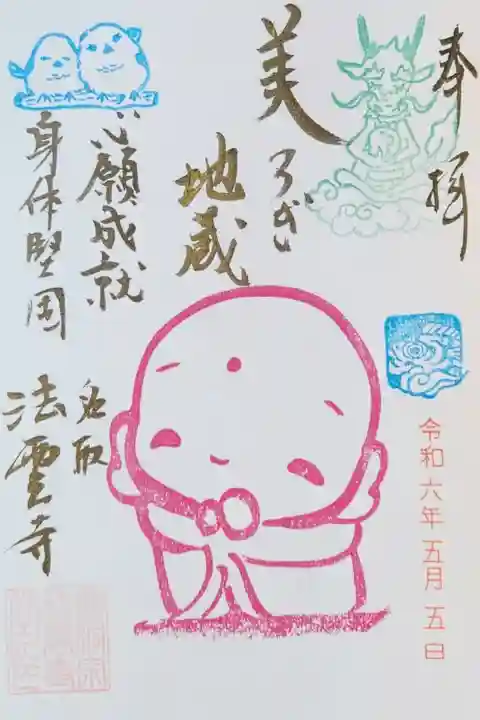 奉拝
美
うぎ
地蔵
心願成就
身体堅固
名取
法雲寺
令和六年 五月 五日